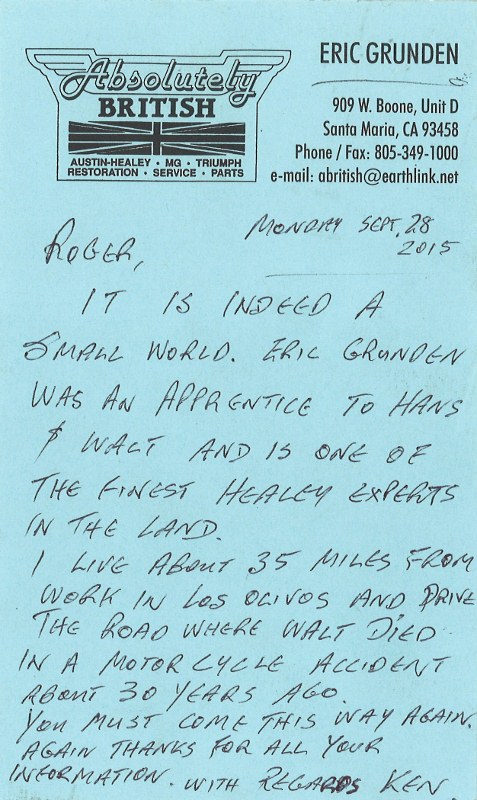 Absolutely
BRITISH
AUSTIN-HEALEY • MG • TRIUMPH
RESTORATION • SERVICE • PARTS
ERIC GRUNDEN
909 W. Boone, Unit D
Santa Maria, CA 93458
Phone / Fax: 805-349-1000
e-mail: abritish@earthlink.net
MONDAY SEPT, 28
2015
ROGER,
IT IS INDEED A
SMALL WORLD. ERIC GRUNDEN
WAS AN APPRENTICE TO HANS
& WALT AND IS ONE OF
THE FINEST HEALEY EXPERTS
IN THE LAND.
I LIVE ABOUT 35 MILES FROM
WORK IN LOS OLIVOS AND DRIVE
THE ROAD WHERE WALT DIED
IN A MOTOR CYCLE ACCIDENT
ABOUT 30 YEARS AGO.
YOU MUST COME THIS WAY AGAIN.
AGAIN THANKS FOR ALL YOUR
INFORMATION. WITH REGARDS KEN.